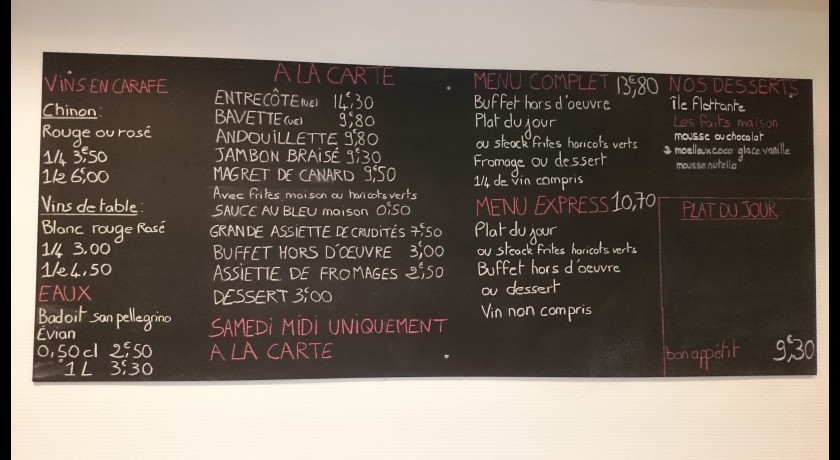 VINS EN CARAFE
Chinon:
Rouge ou rosé
1/4 3€50
1/2 6€00
Vins de table:
Blanc rouge Rosé
1/4 3,00
1/2 4,50
EAUX
Badoit san pellegrino
Évian
0,50cl 2€50
1L 3€30
A LA CARTE
ENTRECÔTE (UE) 14€,30
BAVETTE (UE) 9€80
ANDOUILLETTE 9€80
JAMBON BRAISÉ 9€30
MAGRET DE CANARD 9€50
Avec frites maison ou haricots verts
SAUCE AU BLEU maison 0€50
GRANDE ASSIETTE DE CRUDITÉS 7€50
BUFFET HORS D'OEUVRE 3€00
ASSIETTE DE FROMAGES 2€50
DESSERT 3€00
SAMEDI MIDI UNIQUEMENT
A LA CARTE
MENU COMPLET 13€80
Buffet hors d'oeuvre
Plat du jour
ou steack frites haricots verts
Fromage ou dessert
1/4 de vin compris
MENU EXPRESS 10,70
Plat du jour
ou steack frites haricots verts
Buffet hors d'oeuvre
ou dessert
Vin non compris
NOS DESSERTS
île flottante
Les faits maison
mousse au chocolat
moelleux coco glace vanille
mousse nutella
PLAT DU JOUR
bon appétit 9€30